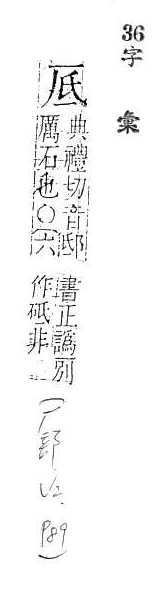 36字 彙
厎
典禮切音邸
厲石也○〔六
書正譌別
作砥非
(厂部 V2. P89)